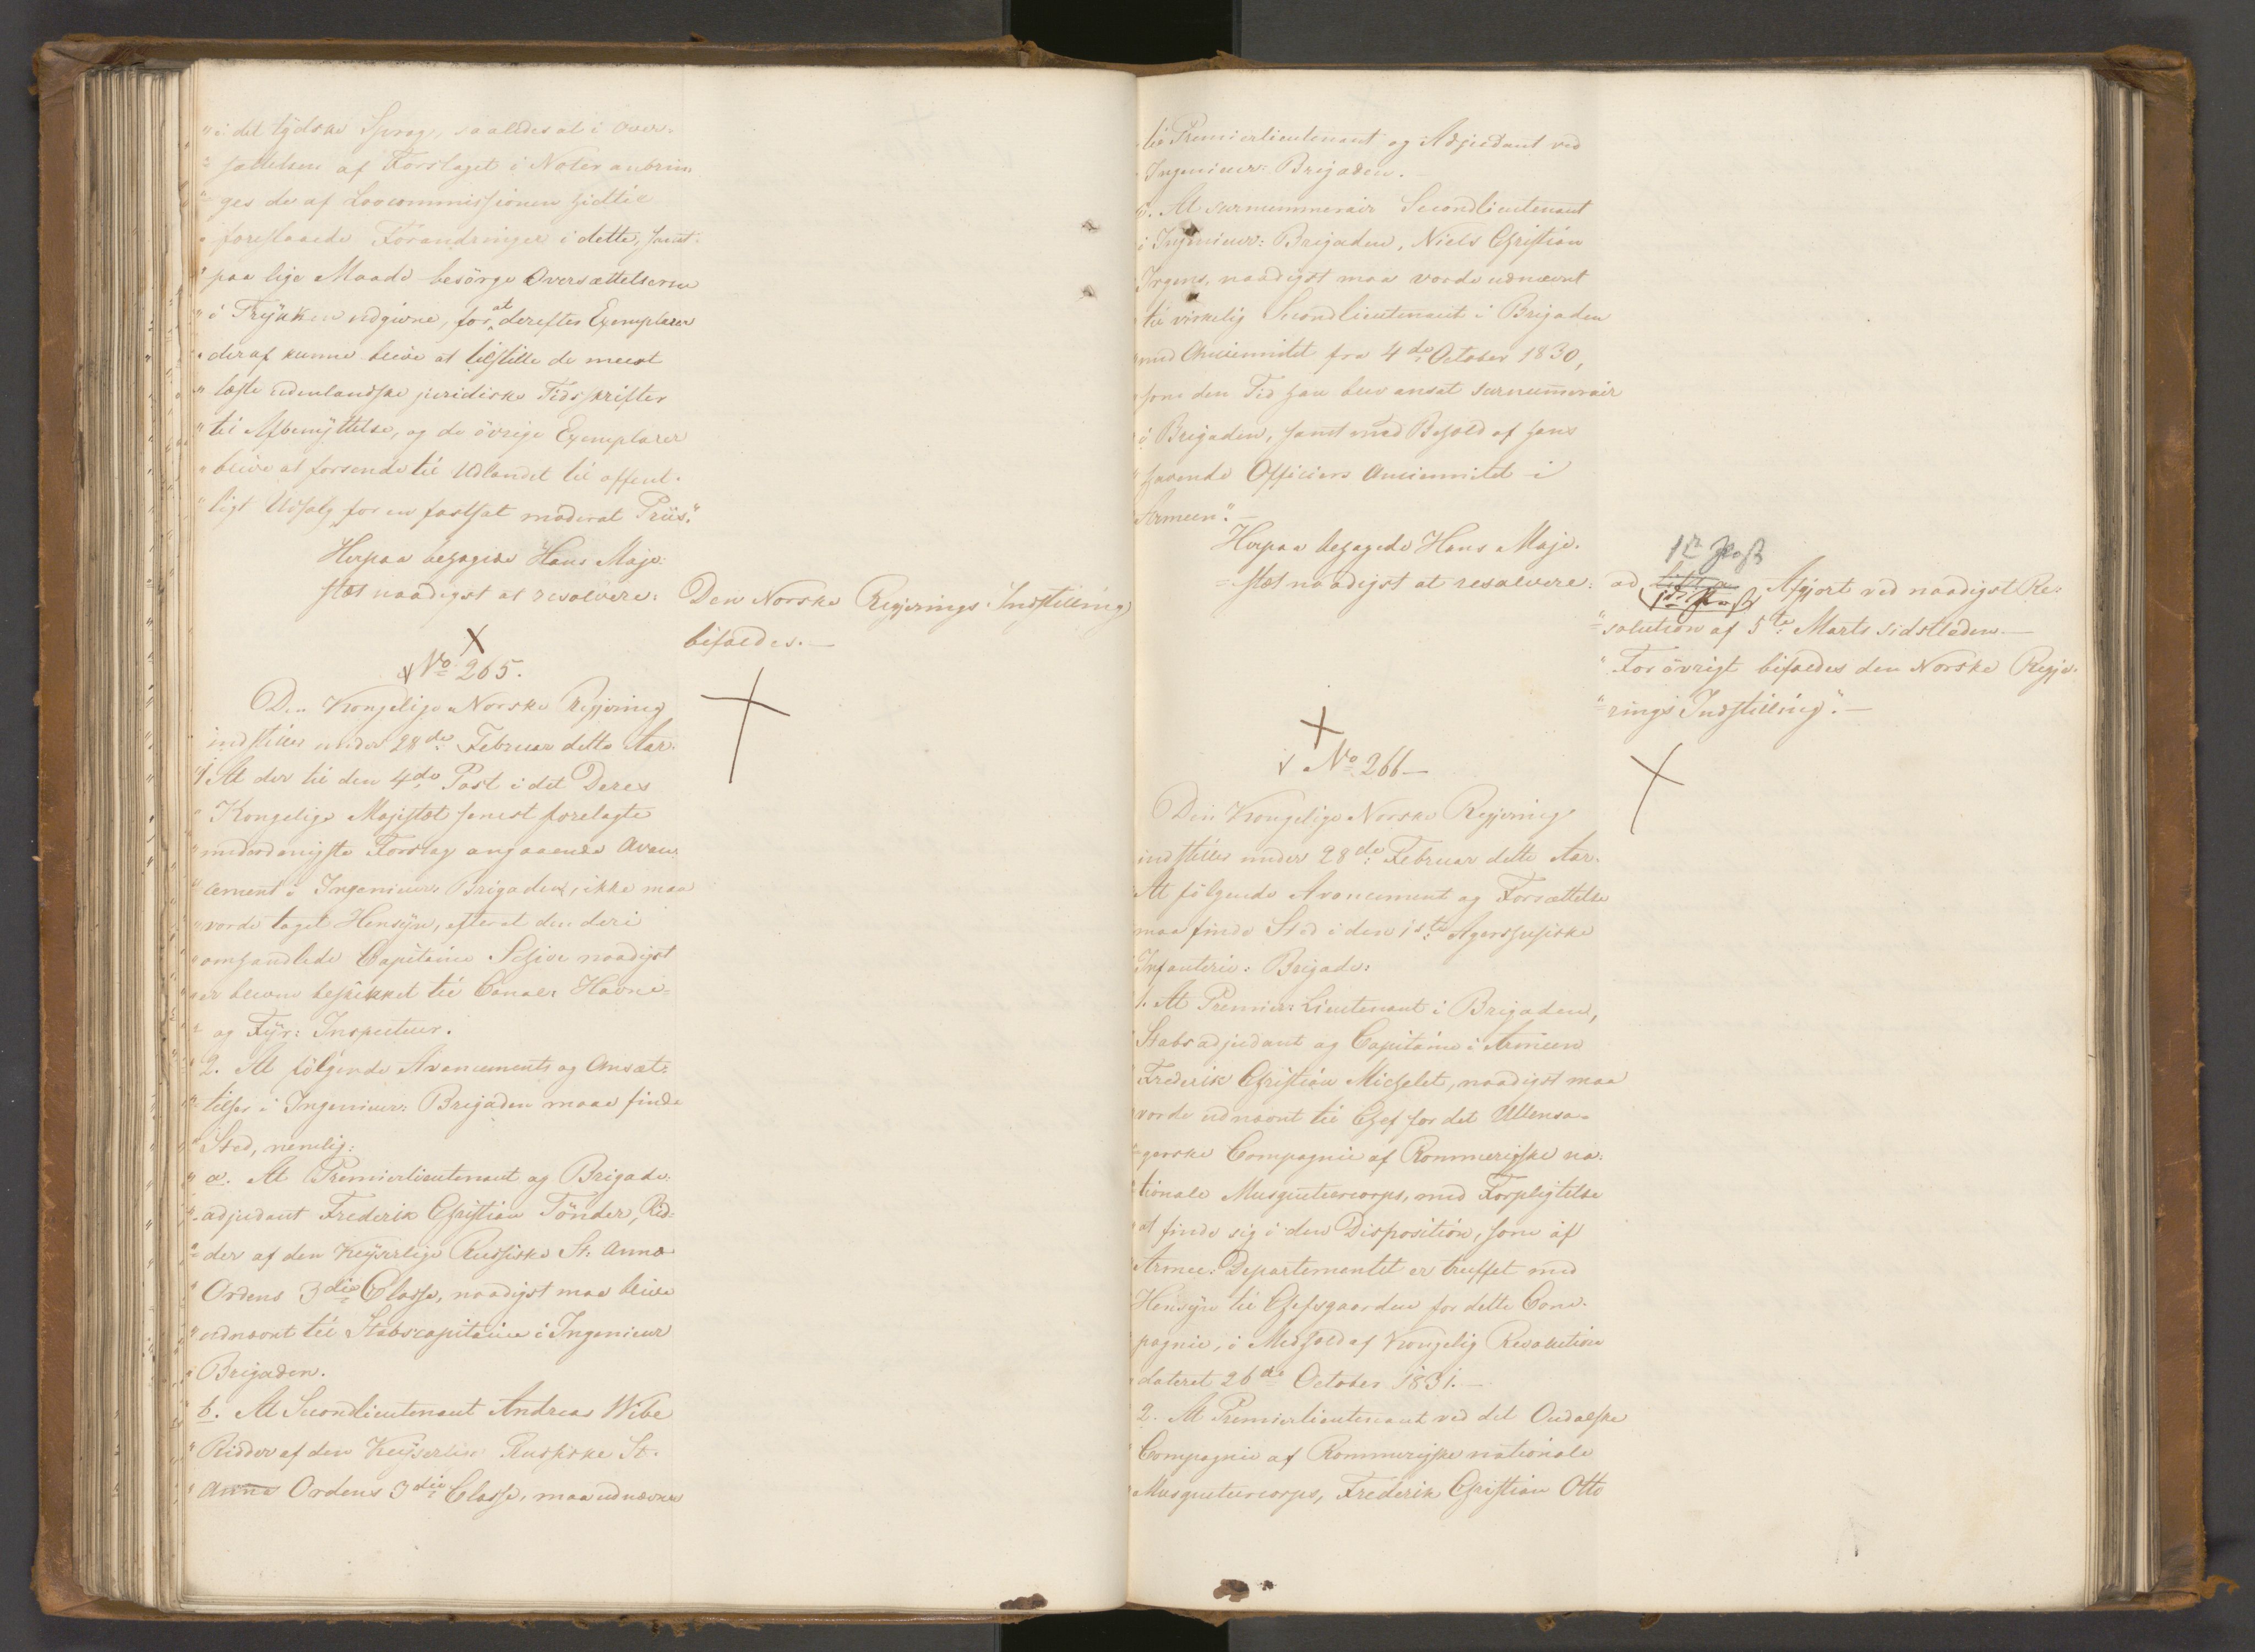 "i det tydske Sprog, saaledes at i Over-
"sættelsen af Forslaget i Noter anbrin
"ges de af Lovcommissionen hidtil
"foreslaaede Forandringer i dette, samt
"paa lige Maade besörge Oversættelserne
"i Trykken udgivne, for at derefter Exemplarer
"deraf kunne blive at tilstille de meest
"læste udenlandske juridiske Tidsskrifter
"til Afbenyttelse, og de övrige Exemplarer
"blive at forsende til Udlandet til offent-
"ligt Udsalg for en fastsat moderat Priis."
Herpaa behagede Hans Maje-
stæt naadigst at resolvere:
Den Norske Regjerings Indstilling
bifaldes.—
No 265.
Den Kongelige Norske Regjering
indstiller under 28de Februar dette Aar.
"1. At der til den 4de Post i det Deres
"Kongelige Majestæt senest forelagte
"underdanigste Forslag angaaende Avan-
"cement i Ingenieur Brigaden, ikke maa
"vorde taget Hensyn, efterat den deri
"omhandlede Capitaine Schive naadigst
"er bleven beskikket til Canal- Havne-
"og Fyr- Inspecteur.
"2. At fölgende Avancements og Ansæt-
"telser i Ingenieur- Brigaden maae finde
"Sted, nemlig:
"a. At Premierlieutenant og Brigade-
"adjudant Frederik Christian Tönder, Rid-
"der af den Keyserlige Russiske St: Anna
"Ordens 3die Classe, naadigst maa blive
"udnævnt til Stabscapitaine i Ingenieur
"Brigaden.
"b. At Secondlieutenant Andreas Wibe
"Ridder af den Keyserlige Russiske St.
"Anna Ordens 3die Classe, maa udnævnes
til Premierlieutenant og Adjudant ved
Ingenieur- Brigaden.—
At surnummerair Secondlieutenant
i Ingenieur- Brigaden, Niels Christian
Irgens, naadigst maa vorde udnævnt
til virkelig Secondlieutenant i Brigaden
med Anciennitet fra 4de October 1830,
som den Tid han blev ansat surnumerair
i Brigaden, samt med Behold af hans
havende Officiers Anciennitet i
Armeen".—
Herpaa behagede Hans Maje-
stæt naadigst at resolvere:
1ste Post
ad Afgjort ved naadigst Re-
"solution af 5te Marts sidstleden.—
"For övrigt bifaldes den Norske Regje-
"rings Indstilling".—
No 266—
Den Kongelige Norske Regjering
indstiller under 28de Februar dette Aar.
At fölgende Avancement og Forsættelse
maa finde Sted i den 1ste Agershusiske
Infanterie- Brigade:
1. At Premier-Lieutenant i Brigaden,
Stabsadjudant og Capitaine i Armeen
Frederik Christian Michelet, naadigst maa
vorde udnævnt til Chef for det Ullensa-
gerske Compagnie af Rommerigske na-
tionale Musqueteercorps, med Forpligtelse
at finde sig i den Disposition, som af
Armee-Departementet er truffet med
Hensyn til Chefsgaarden for dette Com-
pagnie, i Medhold af Kongelig Resolution
dateret 26de October 1831.—
2. At Premierlieutenant ved det Oudalske
Compagnie af Rommerigske nationale
Musqueteercorps, Frederik Christian Otto